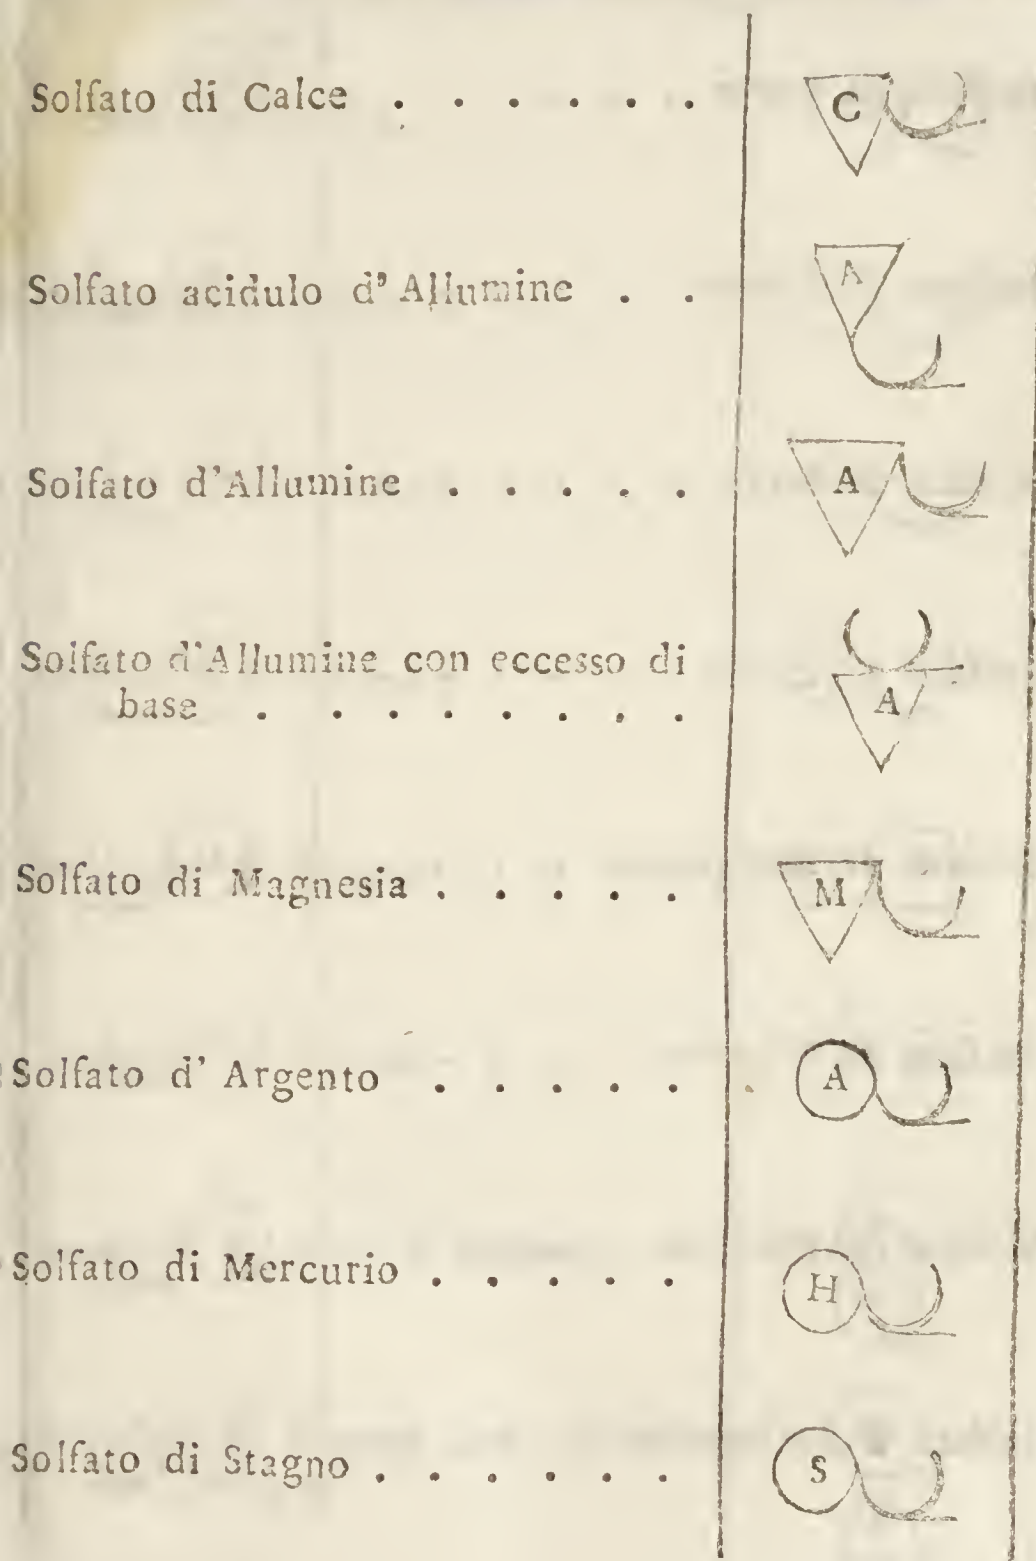 Solfato di Calce . . . . . . C
Solfato acidulo d'Allumine . . A
Solfato d'Allumine . . . . . A
Solfato d'Allumine con eccesso di
base . . . . . . . . A
Solfato di Magnesia . . . . . M
Solfato d'Argento . . . . . A
Solfato di Mercurio . . . . . H
Solfato di Stagno . . . . . . S